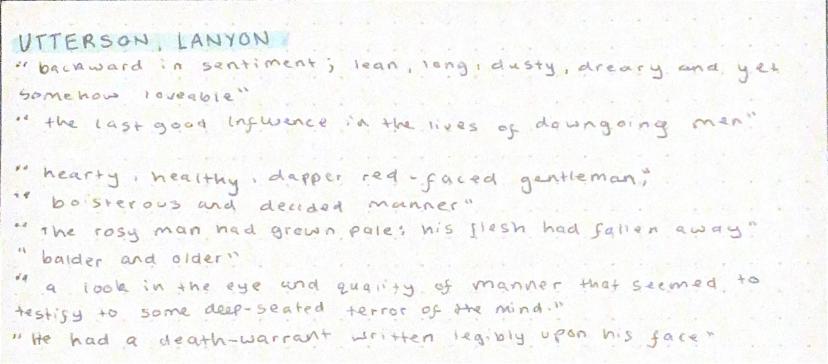 UTTERSON, LANYON
" backward in sentiment; lean, long, dusty, dreary and yet
somehow loveable"
" the last good influence in the lives of downgoing men"
" hearty, healthy, dapper red-faced gentleman;"
" boisterous and decided manner"
" The rosy man had grown pale; his flesh had fallen away"
" balder and older"
" a look in the eye and quality of manner that seemed to
testify to some deep-seated terror of the mind."
" He had a death-warrant written legibly upon his face"